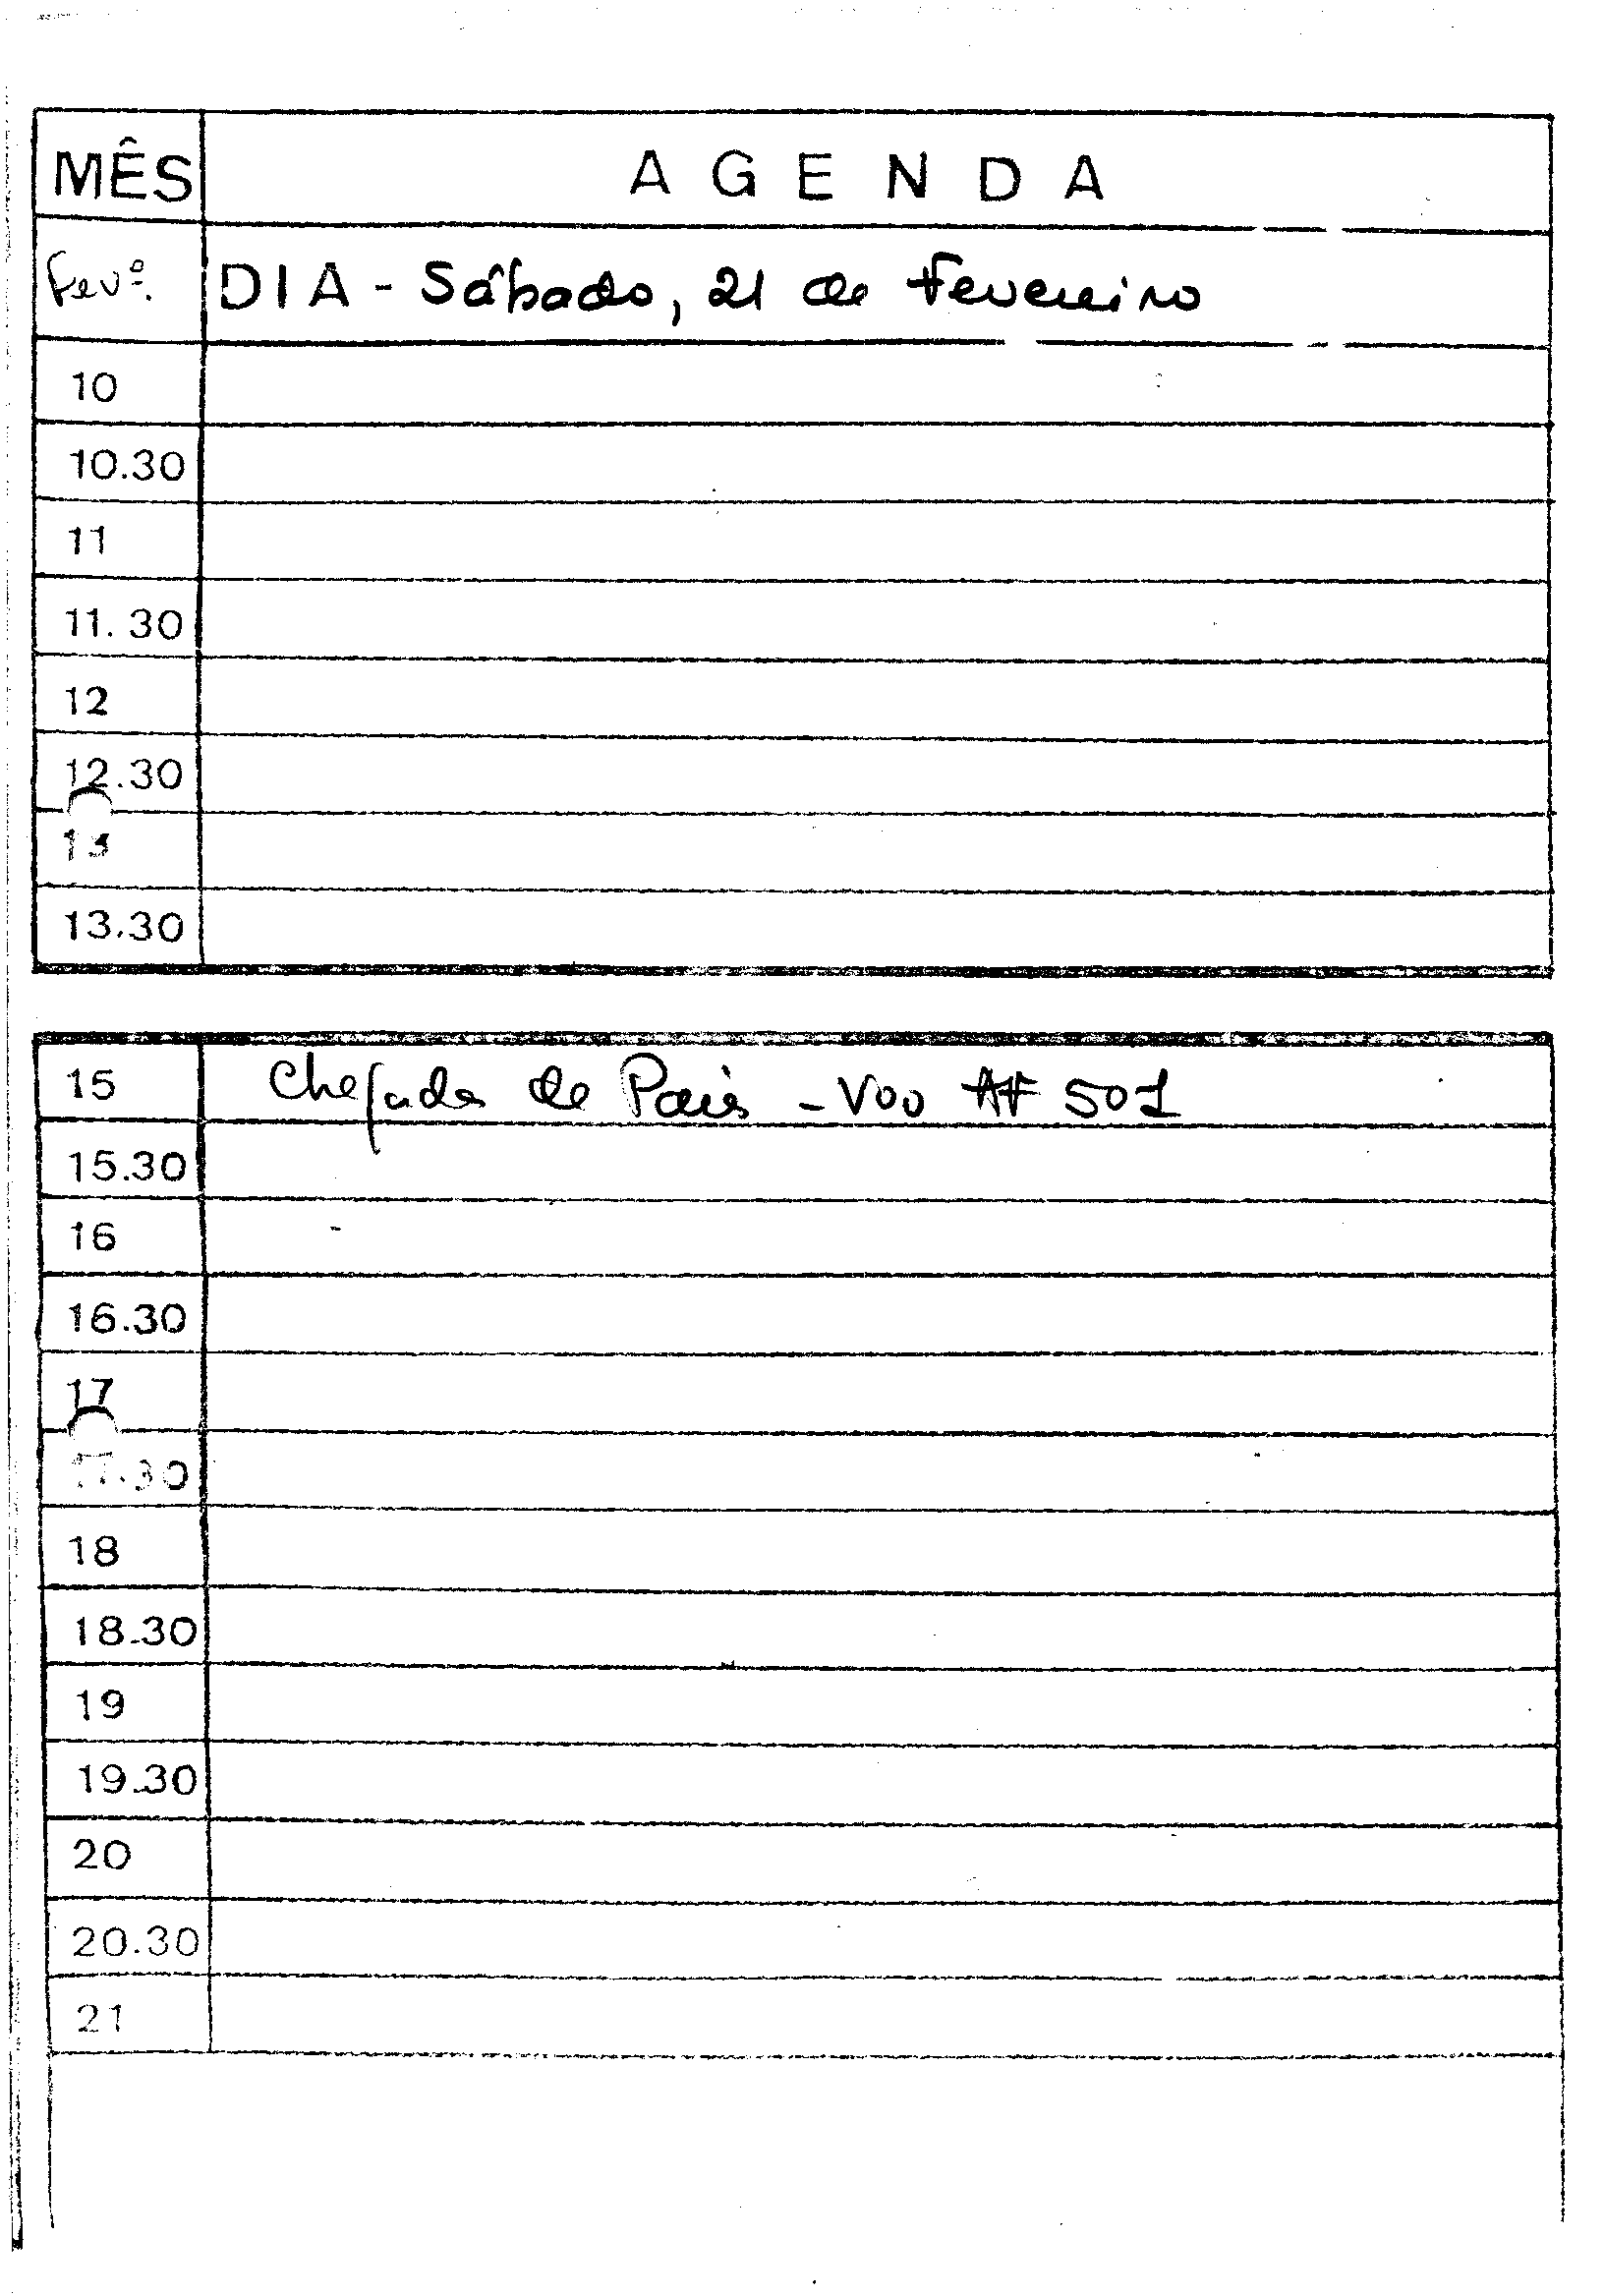 MÊS AGENDA
Fevº. DIA - Sábado, 21 de Fevereiro
10
10.30
11
11.30
12
12.30
13
13.30
15 Chegada de Paris - Voo AF 501
15.30
16
16.30
17
17.30
18
18.30
19
19.30
20
20.30
21